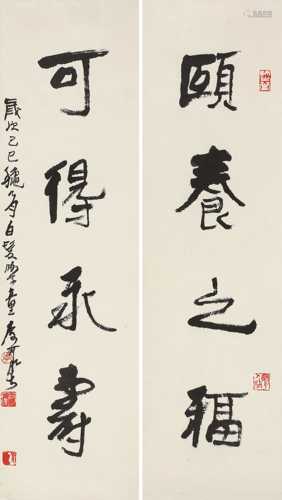 頤養之福
可得永壽
歲次己巳龝月白髮學童